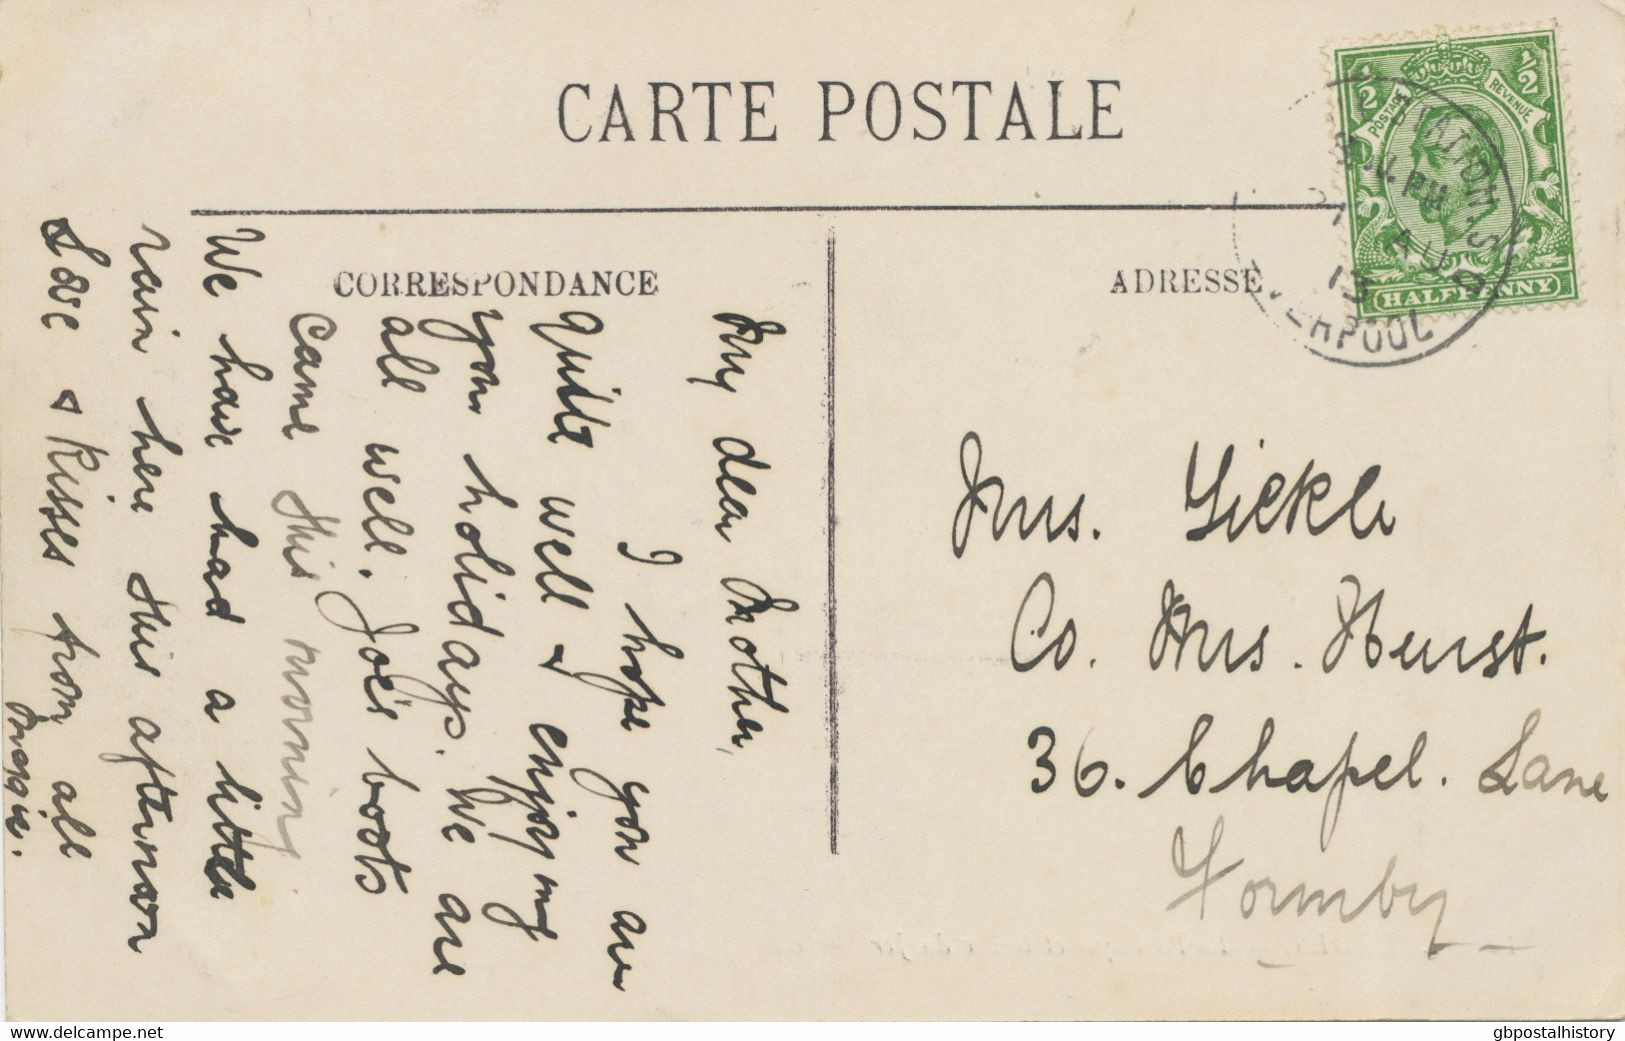 CARTE POSTALE
CORRESPONDANCE
ADRESSE
1/2
1/2
POSTAGE
REVENUE
HALFPENNY
STATION.S
PM
21 AUG
13
LIVERPOOL
My dear Mother,
I hope you are
quite well & enjoying
your holidays. We are
all well. Joe's boots
came this morning
We have had a little
rain here this afternoon
Love & Kisses from all
Maggie.
Mrs. Sickle
Co. Mrs. Hurst.
36. Chapel. Lane
Formby
www.delcampe.net
gbpostalhistory